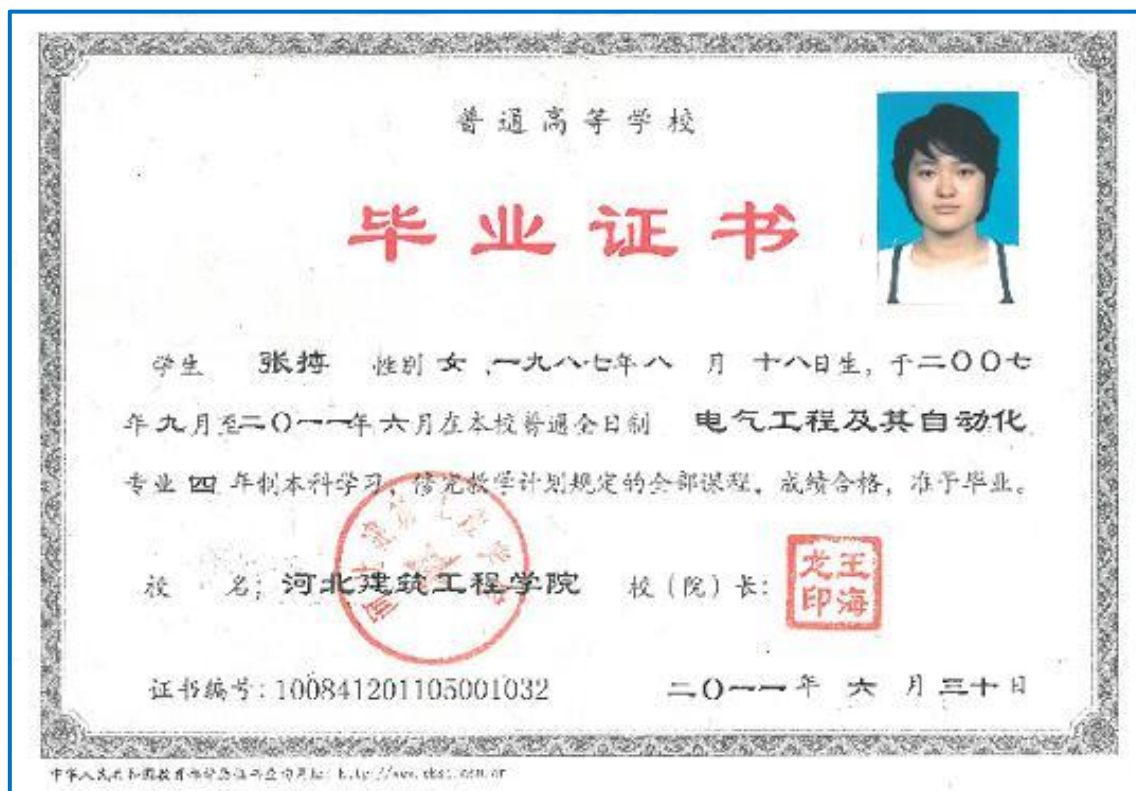 普通高等学校
毕业证书
学生 张搏 性别 女，一九八七年八 月 十八日生，于二〇〇七
年九月至二〇一一年六月在本校普通全日制 电气工程及其自动化
专业 四 年制本科学习，修完教学计划规定的全部课程，成绩合格，准予毕业。
校 名：河北建筑工程学院 校（院）长：
王海龙印
证书编号：100841201105001032 二〇一一年 六 月 三十日
中华人民共和国教育部学历证书查询网址：http://www.chsi.com.cn